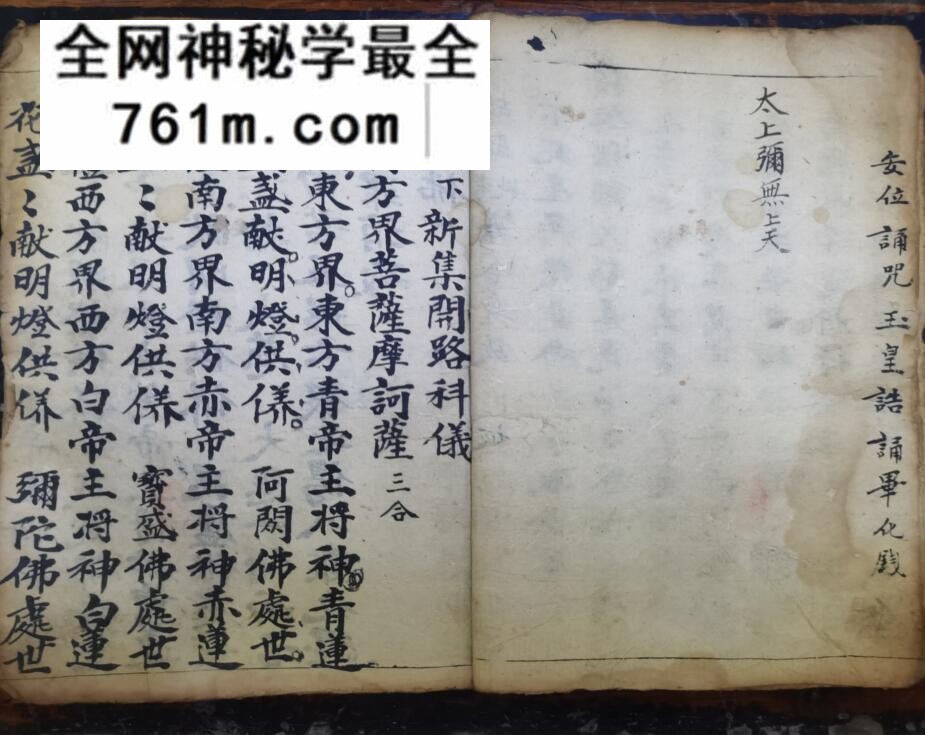 全网神秘学最全
761m.com
安位誦咒玉皇誥誦畢化殿
太上彌無上天
下新集開路科儀
方界菩薩摩訶薩三合
東方界東方青帝主将神青蓮
盞献明燈供俻阿閦佛處世
南方界南方赤帝主将神赤蓮
〻献明燈供俻寳盛佛處世
西方界西方白帝主将神白蓮
花盞〻献明燈供俻彌陀佛處世